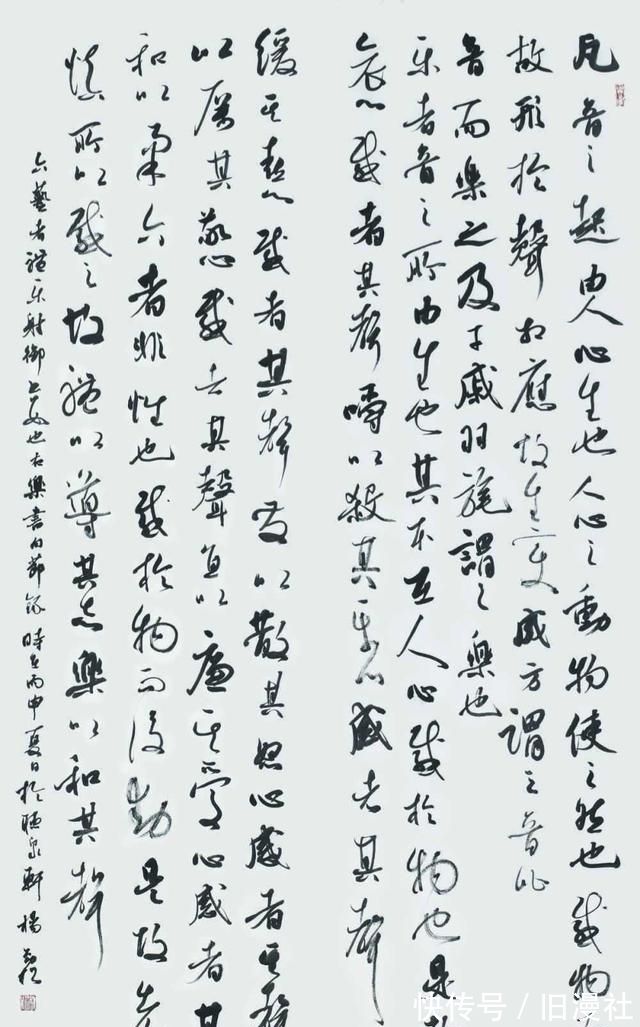 凡音之起由人心生也人心之動物使之然也感物
故形於聲相應故生變成方謂之音比
音而樂之及干戚羽旄謂之樂也
乐者音之所由生也其本在人心感於物也是
哀心感者其聲嚼以殺其乐心感者其聲
緩其喜心感者其聲發以散其怒心感者其聲
以厲其敬心感者其聲直以廉其愛心感者其
和以柔六者非性也感於物而後動是故先
慎所以感之故禮以導其志樂以和其聲
六藝者禮乐射御書數也右樂書内節錄時在丙申夏日於泉軒楊
快传号/旧漫社